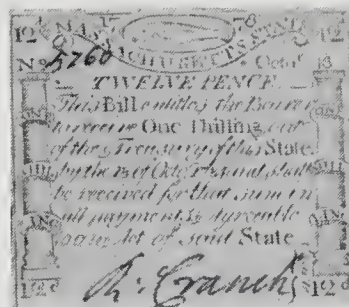 12d 17 78 12d
MASSACHUSETTS STATE
No 5760 Octor 18
TWELVE PENCE
This Bill entitles the Bearer
to receive One Shilling out
of the Treasury of this State
by the 18th Octor and shall
be received for that Sum in
all payments Agreeable
to an Act of said State
12d R: Cranch 12d